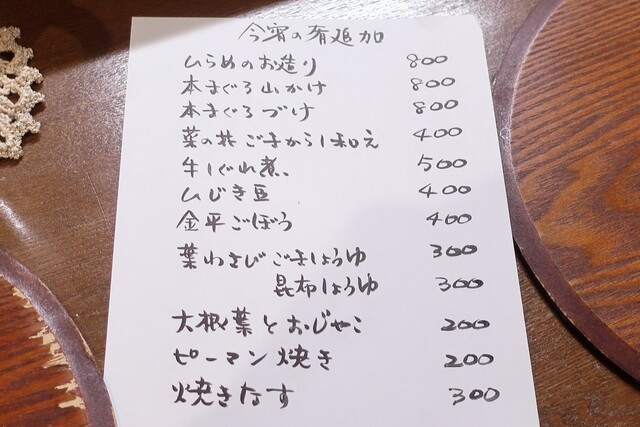 今宵の肴追加
ひらめのお造り 800
本まぐろ山かけ 800
本まぐろづけ 800
菜の花ごまからし和え 400
牛しぐれ煮 500
ひじき豆 400
金平ごぼう 400
葉わさびごましょうゆ 300
昆布しょうゆ 300
大根葉とおじゃこ 200
ピーマン焼き 200
焼きなす 300